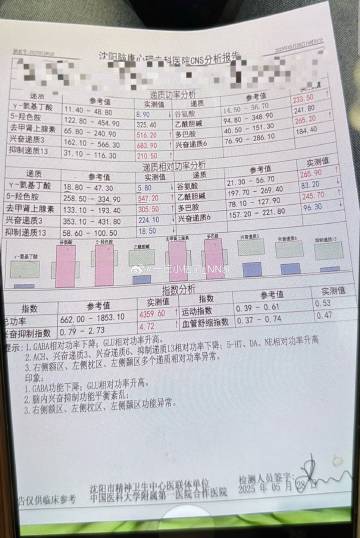 沈阳脑康心理专科医院CNS分析报告
递质功率分析
递质 参考值 实测值 递质 参考值 实测值
γ-氨基丁酸 11.40 - 48.80 8.90 ↓ 谷氨酸 14.50 - 56.70 233.50 ↑
5-羟色胺 122.80 - 454.90 325.40 乙酰胆碱 94.80 - 348.90 241.80
去甲肾上腺素 65.80 - 240.90 516.20 ↑ 多巴胺 40.50 - 151.30 265.20 ↑
兴奋递质3 162.10 - 566.30 683.90 ↑ 兴奋递质6 76.90 - 286.10 184.40
抑制递质13 31.10 - 116.30 210.50 ↑
递质相对功率分析
递质 参考值 实测值 递质 参考值 实测值
γ-氨基丁酸 18.80 - 47.30 5.80 ↓ 谷氨酸 21.30 - 56.70
5-羟色胺 258.50 - 334.90 347.20 ↑ 乙酰胆碱 197.70 - 269.40 83.20 ↓
去甲肾上腺素 133.10 - 193.40 305.50 ↑ 多巴胺 78.10 - 127.90 245.70 ↑
兴奋递质3 353.10 - 431.80 224.10 ↓ 兴奋递质6 157.20 - 221.80 96.30 ↓
抑制递质13 58.60 - 100.50 18.50 ↓
指数分析
指数 参考值 实测值 指数 参考值 实测值
总功率 662.00 - 1853.10 4359.60 ↑ 运动指数 0.39 - 0.61 0.53
兴奋抑制指数 0.79 - 2.73 4.72 ↑ 血管舒缩指数 0.37 - 0.74 0.47
提示：1.GABA相对功率下降；GLU相对功率升高。
2.ACH、兴奋递质3、兴奋递质6、抑制递质13相对功率下降；5-HT、DA、NE相对功率升高
3.右侧额区、左侧枕区、左侧颞区多个递质相对功率异常。
印象：
1.GABA功能下降；GLU相对功率升高。
2.脑内兴奋抑制功能平衡紊乱；
3.右侧额区、左侧枕区、左侧颞区功能异常。
沈阳市精神卫生中心医联体单位 检测人员签字：
中国医科大学附属第一医院合作医院 2025 年 05 月
告仅供临床参考